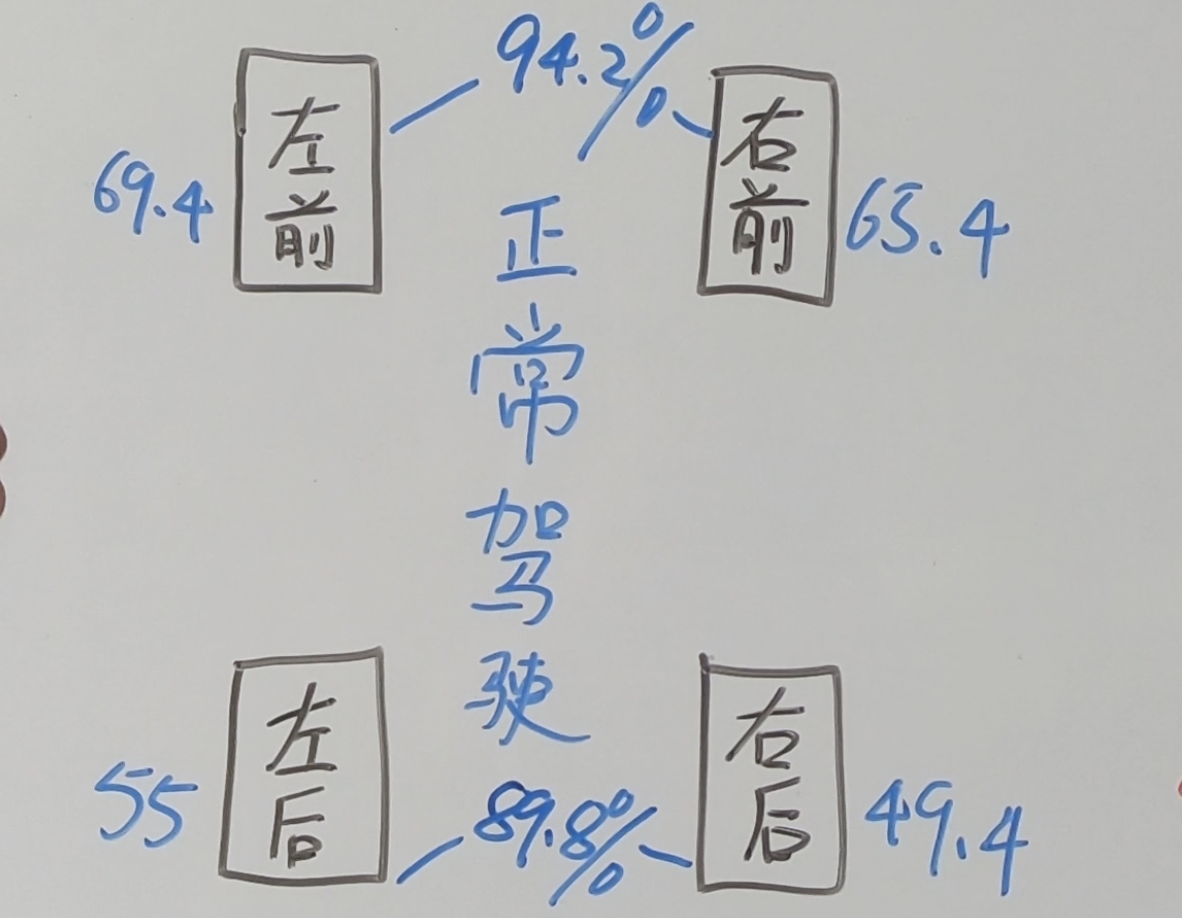 94.2%
左前
右前
69.4
65.4
正常驾驶
左后
右后
55
89.8%
49.4